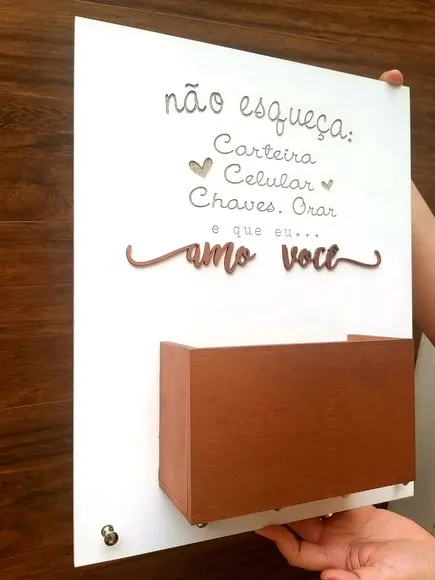 não esqueça:
Carteira
Celular
Chaves, Orar
e que eu...
amo você